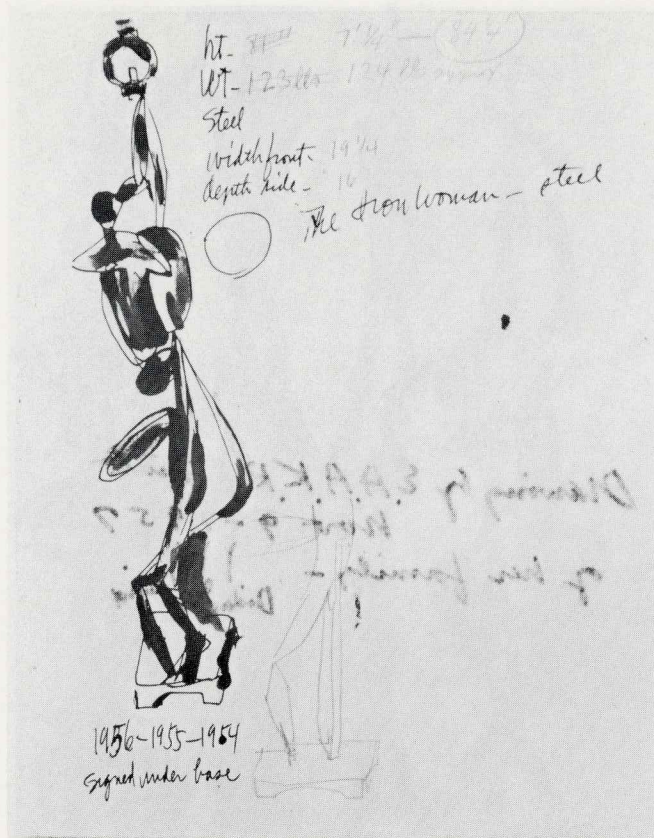 ht- 7' ¼" — (84¼")
Wt- 123 lbs 124 lbs
Steel
width front- 19 ¼
depth side- 16
The Iron Woman - steel
Drawing by E.A.K.
of her family -
1956-1955-1954
signed under base